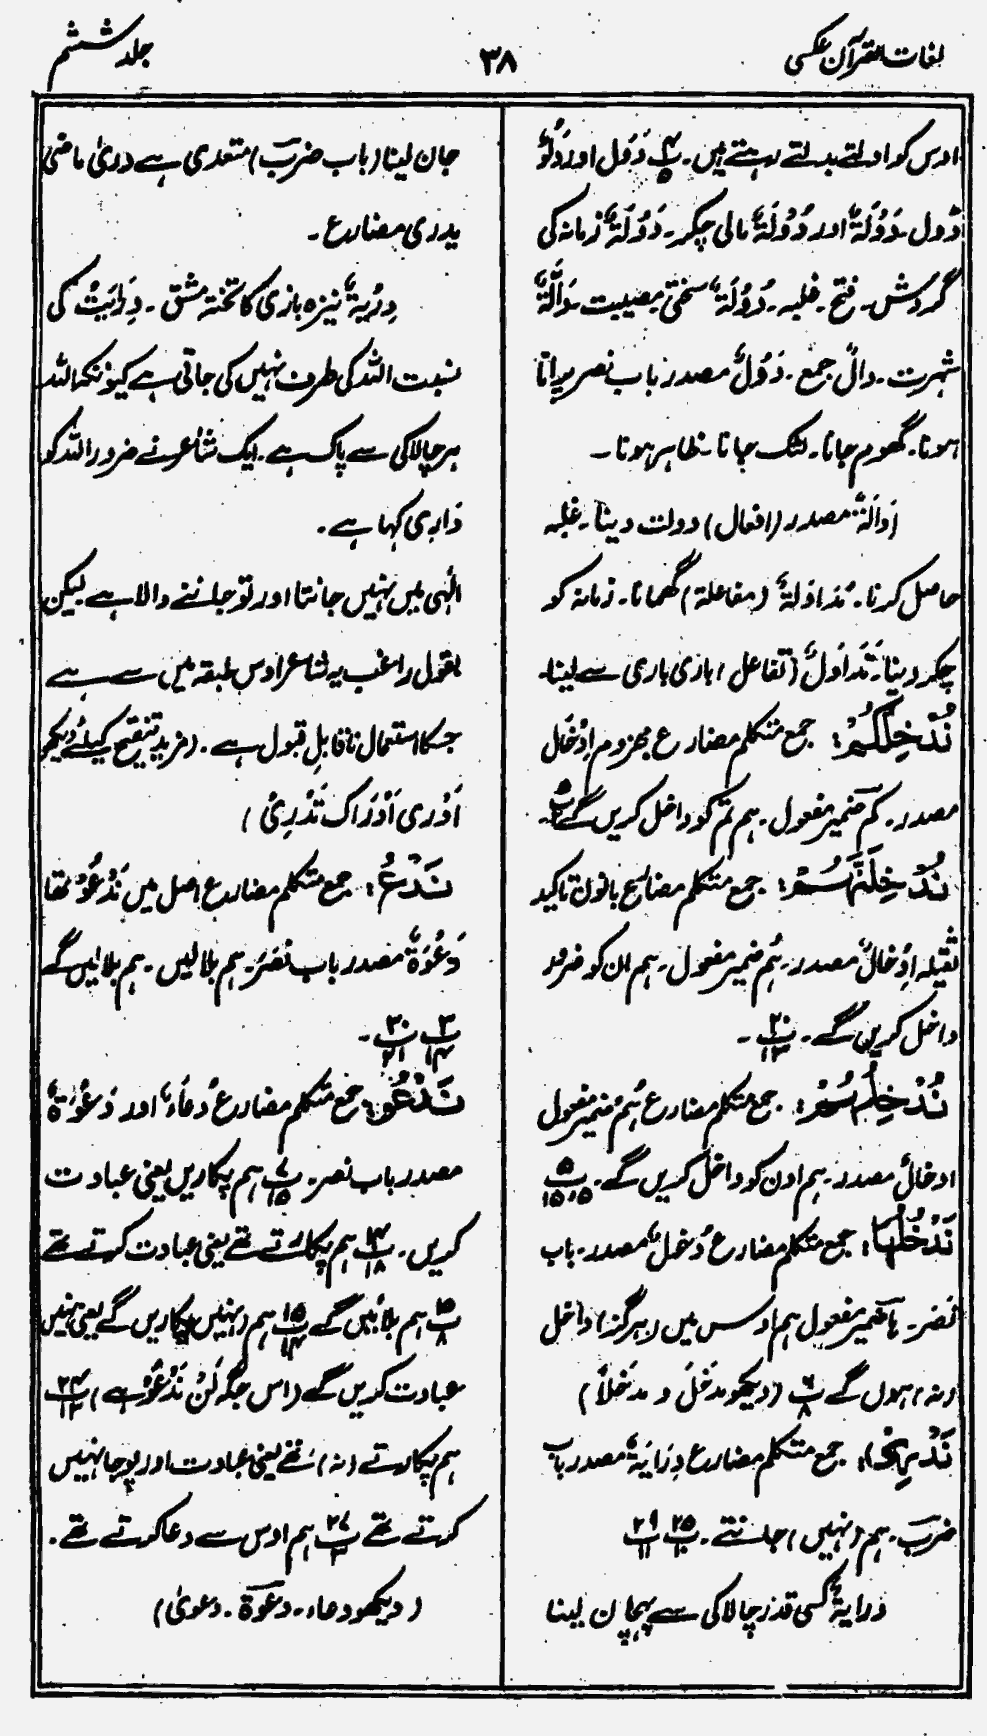 لغات القرآن عکسی
۳۸
جلد ششم
اوس کو ادلتے بدلتے رہتے ہیں۔ پ۴/۵ دَوَل اور دُلُوٌ
دُول۔ دَوْلَۃٌ اور دُوْلَۃٌ مالی چکر۔ دَوْلَۃٌ زمانہ کی
گردش۔ فتح۔ غلبہ۔ دُوْلَۃٌ سختی مصیبت۔ دَالَۃٌ
شہرت۔ دالٌ جمع۔ دَوْلٌ مصدر باب نصر پرانا
ہونا۔ گھوم جانا۔ لٹک جانا۔ ظاہر ہونا۔
اَدَالَۃٌ مصدر (افعال) دولت دینا۔ غلبہ
حاصل کرنا۔ مُدَاوَلَۃٌ (مفاعلۃ) گھمانا۔ زمانہ کو
چکر دینا۔ تَدَاوُلٌ (تفاعل) باری باری سے لینا۔
نُدْخِلْکُمْ: جمع متکلم مضارع مجزوم اِدْخَال
مصدر۔ کُم ضمیر مفعول۔ ہم تم کو داخل کریں گے پ۵/۲۔
نُدْخِلَنَّہُمْ: جمع متکلم مضارع بانون تاکید
ثقیلہ اِدْخَالٌ مصدر۔ ہُم ضمیر مفعول۔ ہم ان کو ضرور
داخل کریں گے۔ پ۲۰/۱۳۔
نُدْخِلُہُمْ: جمع متکلم مضارع ہُم ضمیر مفعول
ادخالٌ مصدر۔ ہم اون کو داخل کریں گے۔ پ۵/۵،۱۵
نَدْخُلَہَا: جمع متکلم مضارع دُخُولٌ مصدر۔ باب
نَصَر۔ ہا ضمیر مفعول ہم اوس میں (ہرگز) داخل
(نہ) ہوں گے پ۶/۸ (دیکھو مدخَلَ و مدخلاً)
نَدْرِیْ): جمع متکلم مضارع دِرَایَۃٌ مصدر باب
ضرب۔ ہم (نہیں) جانتے۔ پ۲۵/۲۰ پ۲۹/۱۱
دَرَایۃٌ کسی قدر چالاکی سے پہچان لینا
جان لینا (باب ضرب) متعدی ہے دریٰ ماضی
یدری مضارع۔
دِرْیۃٌ نیزہ بازی کا تختہ مشق۔ دِرَایَتٌ کی
نسبت اللہ کی طرف نہیں کی جاتی ہے کیونکہ اللہ
ہر چالاکی سے پاک ہے۔ ایک شاعر نے ضرور اللہ کو
دَارِی کہا ہے۔
الٰہی میں نہیں جانتا اور تو جاننے والا ہے لیکن
بقول راغب یہ شاعر اوس طبقہ میں سے ہے
جسکا استعمال ناقابلِ قبول ہے۔ (مزید تنقیح کیلئے دیکھو
اَدْرِی اَدْرَاک تَدْرِیْ)
نَدْعُ: جمع متکلم مضارع اصل میں نَدْعُوْ تھا
دَعْوَۃٌ مصدر باب نَصَرَ۔ ہم بلالیں۔ ہم بلالیں گے
پ۳/۱۴ پ۳۰/۲۱۔
نَدْعُو: جمع متکلم مضارع دُعَاءٌ اور دَعْوَۃٌ
مصدر باب نصر۔ پ۷/۱۵ ہم پکاریں یعنی عبادت
کریں۔ پ۱۴/۱۸ ہم پکارتے تھے یعنی عبادت کرتے تھے
پ۱۵/۸ ہم بلائیں گے پ۱۵/۱۴ ہم (نہیں) پکاریں گے یعنی نہیں
عبادت کریں گے (اس جگہ لَنْ نَدْعُوَا ہے) پ۲۴/۱۲
ہم پکارتے (نہ) تھے یعنی عبادت اور پوجا نہیں
کرتے تھے پ۲۷/۳ ہم اوس سے دعا کرتے تھے۔
(دیکھو دعاء۔ دعوۃ۔ دعویٰ)